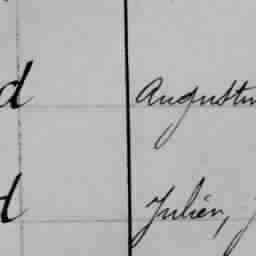 d Augustin
d Julien, J